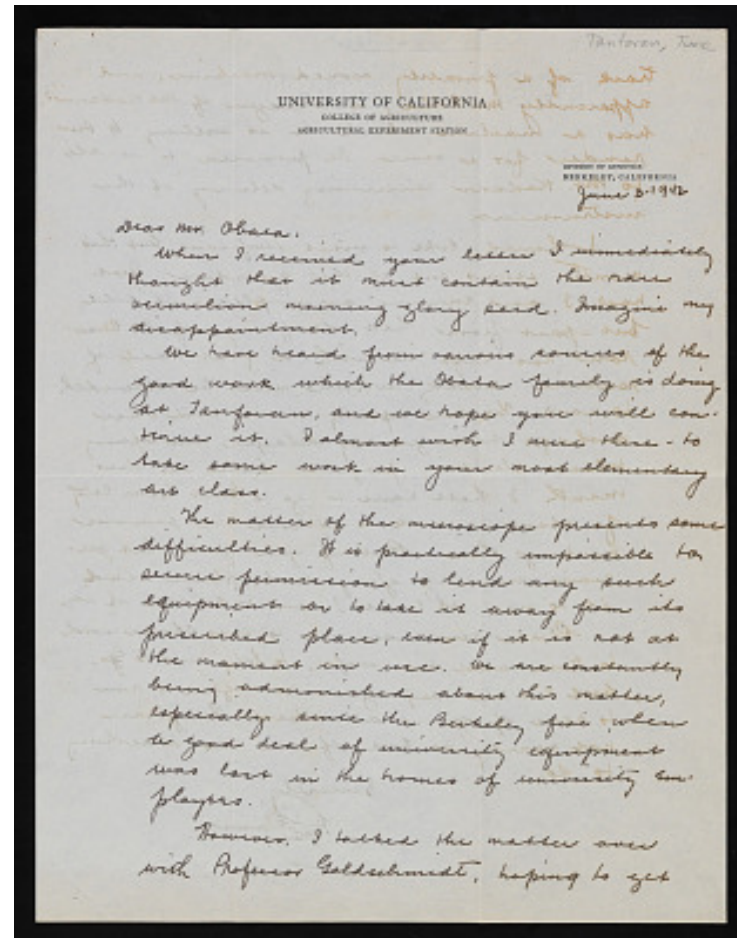 Tanforan, June
UNIVERSITY OF CALIFORNIA
COLLEGE OF AGRICULTURE
AGRICULTURAL EXPERIMENT STATION
BERKELEY, CALIFORNIA
June 3-1942
Dear Mr. Obata:
When I received your letter I immediately
thought that it must contain the rare
vermilion morning glory seed. Imagine my
disappointment.
We have heard from various sources of the
good work which the Obata family is doing
at Tanforan, and we hope you will con-
tinue it. I almost wish I were there - to
take some work in your most elementary
art class.
The matter of the microscope presents some
difficulties. It is practically impossible to
secure permission to lend any such
equipment or to take it away from its
prescribed place, even if it is not at
the moment in use. We are constantly
being admonished about this matter,
especially since the Berkeley fire, when
a good deal of university equipment
was lost in the homes of university em-
ployees.
However, I talked the matter over
with Professor Goldschmidt, hoping to get